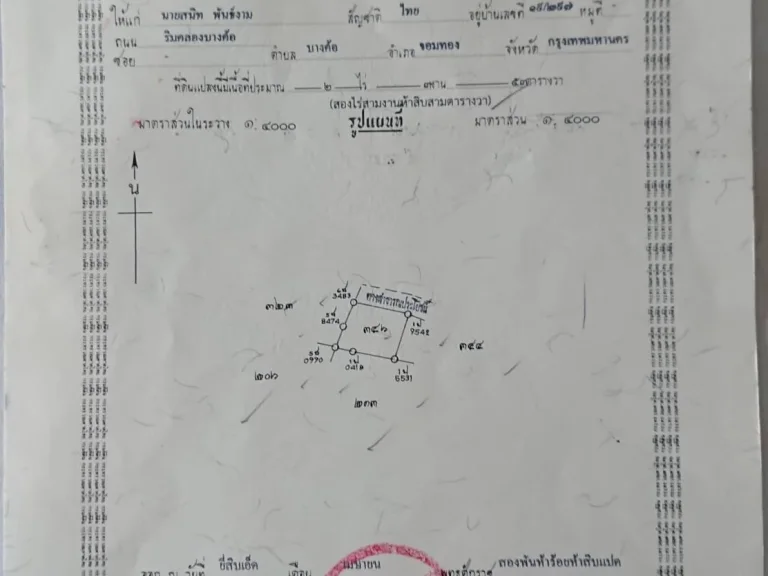 ให้แก่ นายสนิท พันธ์งาม สัญชาติ ไทย อยู่บ้านเลขที่ ๑๕/๒๙๗ หมู่ที่
ถนน ริมคลองบางค้อ ตำบล บางค้อ อำเภอ จอมทอง จังหวัด กรุงเทพมหานคร
ซอย
ที่ดินแปลงนี้มีเนื้อที่ประมาณ ๒ ไร่ ๓ งาน ๕๓ ตารางวา
(สองไร่สามงานห้าสิบสามตารางวา)
มาตราส่วนในระวาง ๑: ๔๐๐๐ รูปแผนที่ มาตราส่วน ๑: ๔๐๐๐
น
ทางสาธารณประโยชน์
3483
๓๒๓
8474
๓๔๖
9542
๓๔๔
0970
0418
5531
๒๐๖
๒๓๓
ออก ณ วันที่ ยี่สิบเอ็ด เดือน เมษายน พุทธศักราช สองพันห้าร้อยห้าสิบแปด